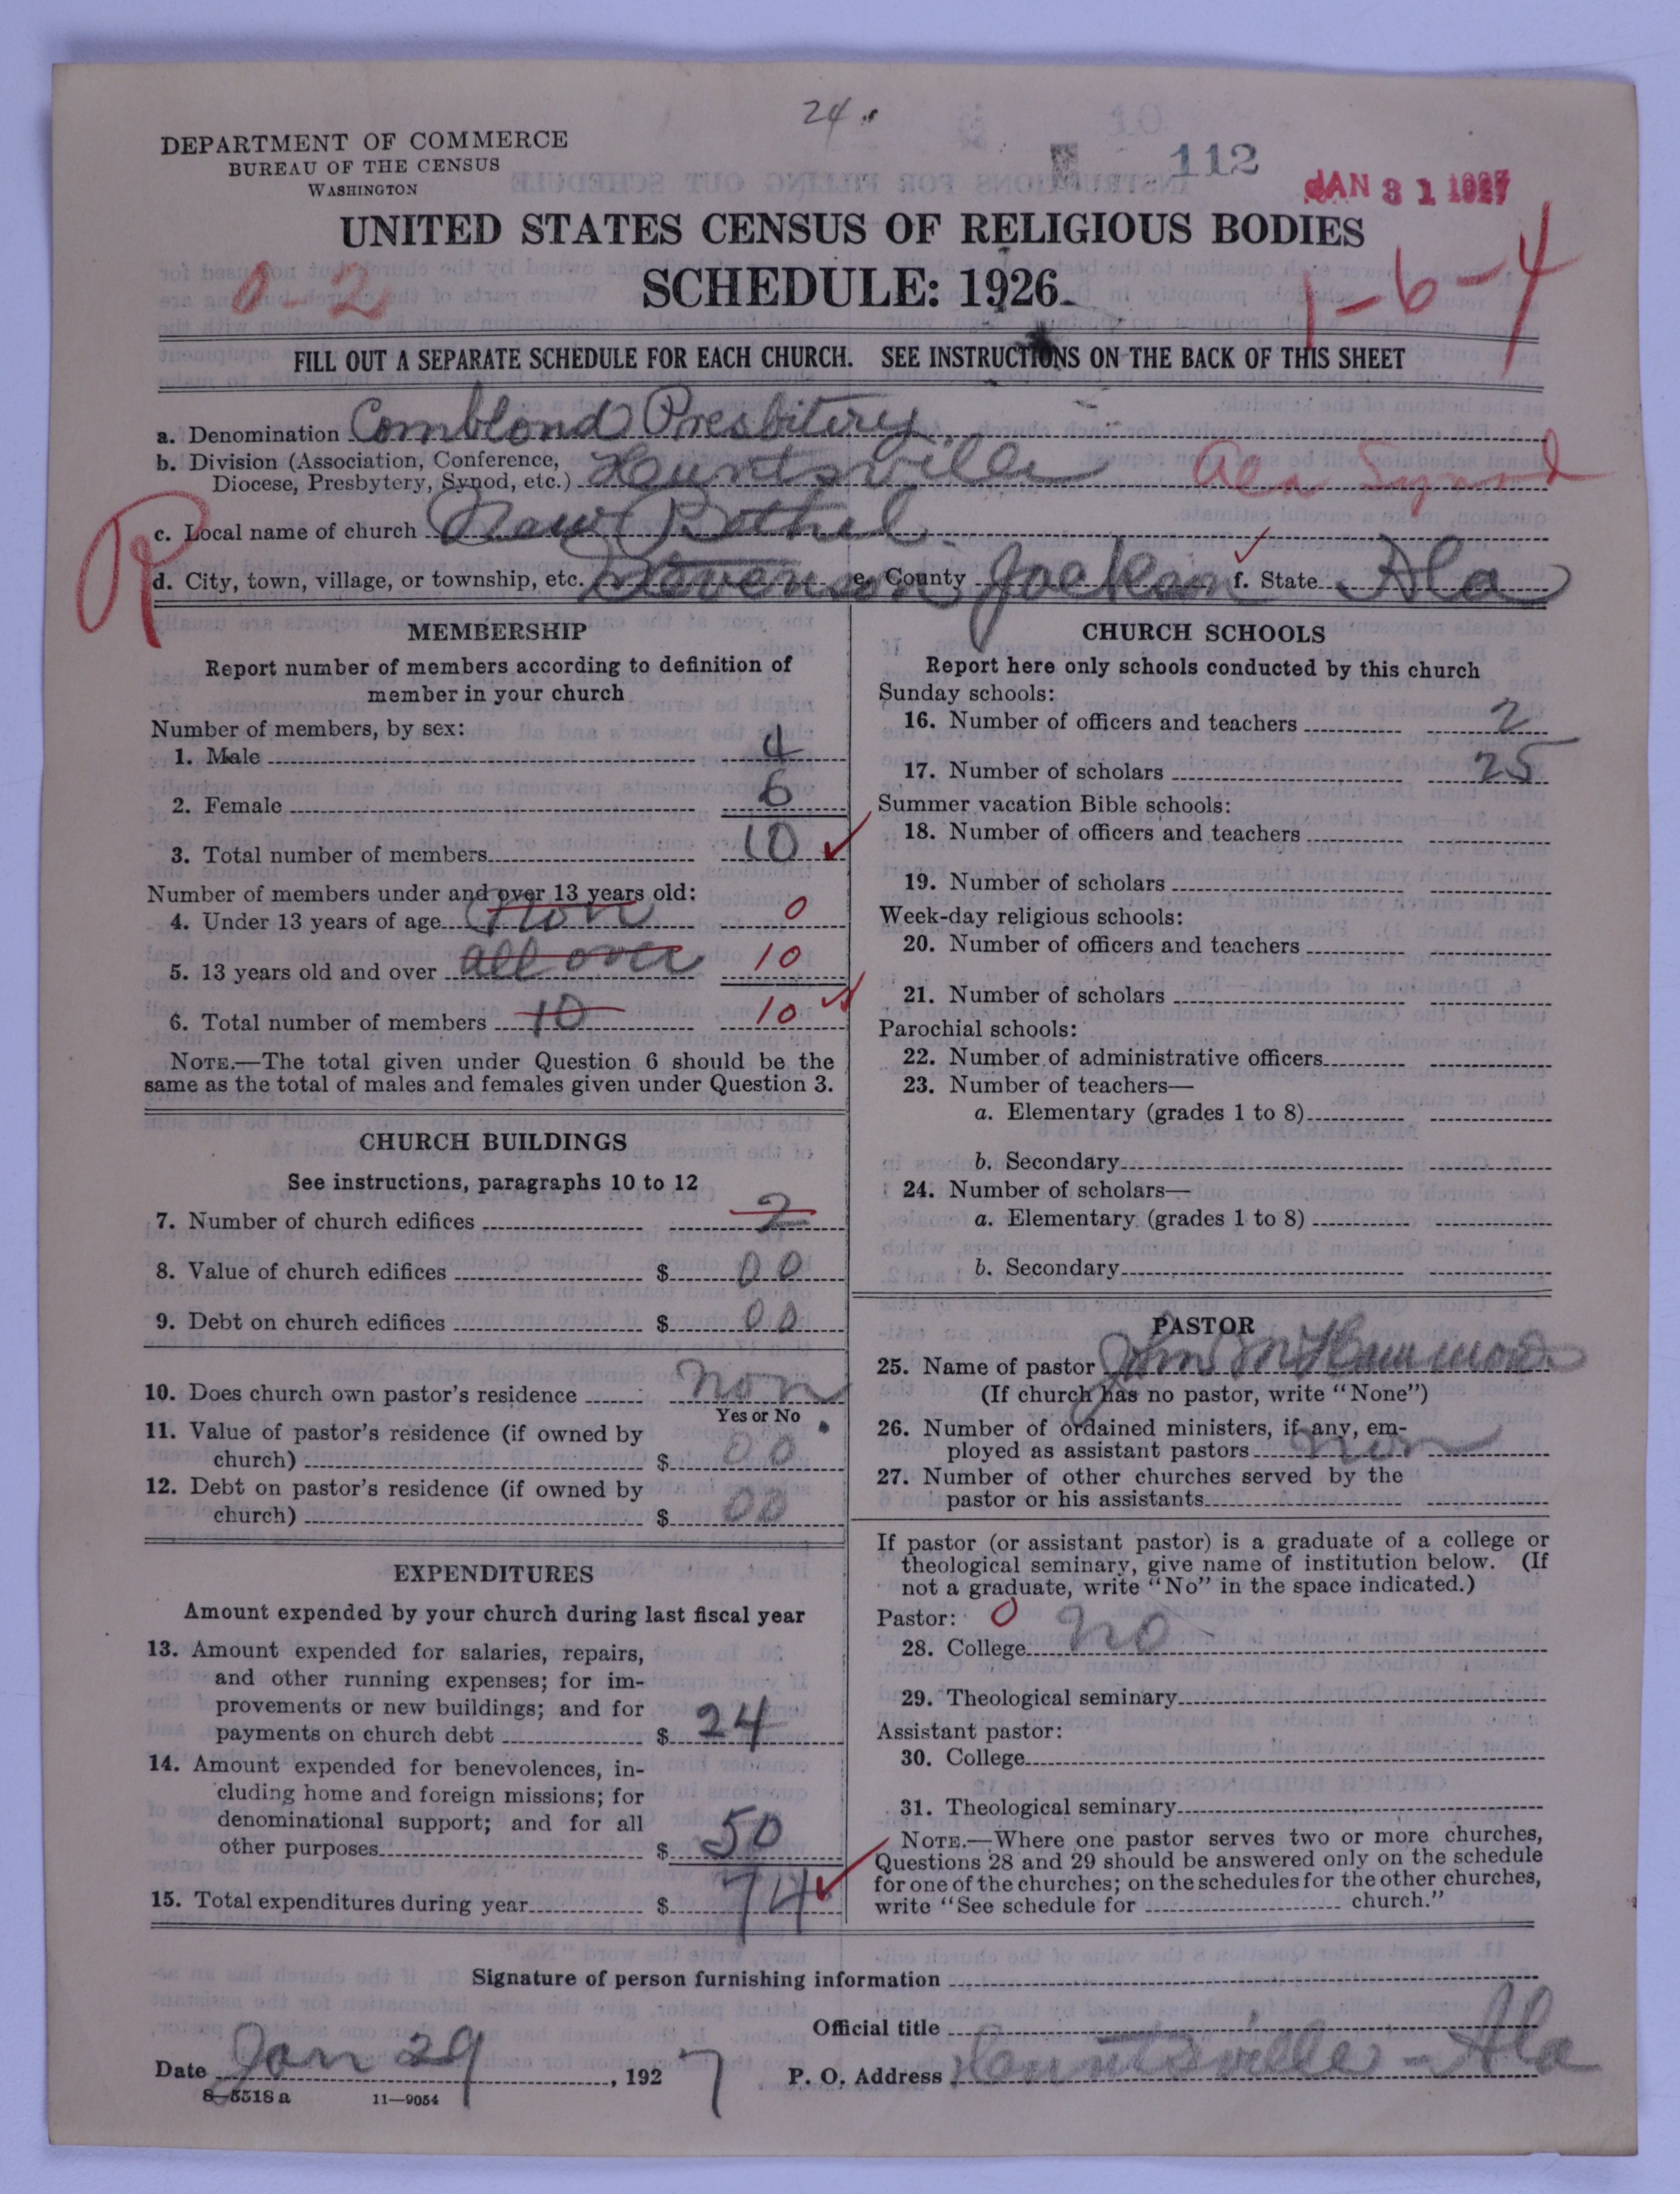 24
DEPARTMENT OF COMMERCE
BUREAU OF THE CENSUS
WASHINGTON
112
JAN 31 1927
UNITED STATES CENSUS OF RELIGIOUS BODIES
SCHEDULE: 1926
0-2
1-6-4
FILL OUT A SEPARATE SCHEDULE FOR EACH CHURCH. SEE INSTRUCTIONS ON THE BACK OF THIS SHEET
a. Denomination Comblond Presbitery
b. Division (Association, Conference,
Diocese, Presbytery, Synod, etc.) Huntsville Ala Synod
R
c. Local name of church Naw Bethel
d. City, town, village, or township, etc. Stevenson e. County Jackson f. State Ala
MEMBERSHIP
Report number of members according to definition of
member in your church
Number of members, by sex:
1. Male 4
2. Female 6
3. Total number of members 10
Number of members under and over 13 years old:
4. Under 13 years of age non 0
5. 13 years old and over all over 10
6. Total number of members 10 10
NOTE.—The total given under Question 6 should be the
same as the total of males and females given under Question 3.
CHURCH BUILDINGS
See instructions, paragraphs 10 to 12
7. Number of church edifices 2
8. Value of church edifices $ 00
9. Debt on church edifices $ 00
10. Does church own pastor's residence non
Yes or No
11. Value of pastor's residence (if owned by
church) $ 00
12. Debt on pastor's residence (if owned by
church) $ 00
EXPENDITURES
Amount expended by your church during last fiscal year
13. Amount expended for salaries, repairs,
and other running expenses; for im-
provements or new buildings; and for
payments on church debt $ 24
14. Amount expended for benevolences, in-
cluding home and foreign missions; for
denominational support; and for all
other purposes $ 50
15. Total expenditures during year $ 74
CHURCH SCHOOLS
Report here only schools conducted by this church
Sunday schools:
16. Number of officers and teachers 2
17. Number of scholars 25
Summer vacation Bible schools:
18. Number of officers and teachers
19. Number of scholars
Week-day religious schools:
20. Number of officers and teachers
21. Number of scholars
Parochial schools:
22. Number of administrative officers
23. Number of teachers—
a. Elementary (grades 1 to 8)
b. Secondary
24. Number of scholars—
a. Elementary (grades 1 to 8)
b. Secondary
PASTOR
25. Name of pastor John M Hammond
(If church has no pastor, write "None")
26. Number of ordained ministers, if any, em-
ployed as assistant pastors non
27. Number of other churches served by the
pastor or his assistants
If pastor (or assistant pastor) is a graduate of a college or
theological seminary, give name of institution below. (If
not a graduate, write "No" in the space indicated.)
Pastor: 0
28. College no
29. Theological seminary
Assistant pastor:
30. College
31. Theological seminary
NOTE.—Where one pastor serves two or more churches,
Questions 28 and 29 should be answered only on the schedule
for one of the churches; on the schedules for the other churches,
write "See schedule for church."
Signature of person furnishing information
Official title
Date Jan 29, 1927 P. O. Address Huntsville - Ala
8-5518a 11—9054